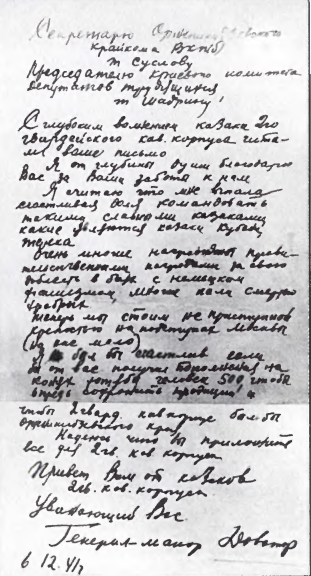 Секретарю Орджоникидзевского
крайкома ВКПб
т Суслову
Председателю краевого комитета
депутатов трудящихся
т Шадрину!
С глубоким волнением казаки 2го
гвардейского кав. корпуса чита-
ли ваше письмо
Я от глубины души благодарю
Вас за Ваши заботы к нам
Я считаю что мне выпала
счастливая доля командовать
такими славными казаками
какие являются казаки Кубани,
Терека
Очень многие награждены прави-
тельственными наградами за свою
доблесть в боях с немецким
фашизмом, многие пали смертью
храбрых
Теперь мы стоим неприступной
крепостью на подступах Москвы
(из вас мало)
Я был бы счастлив если
б от вас получил пополнения на
конях человек 500, чтобы
впредь сохранить традиции и
чтобы 2 гвард. кав корпус был бы
орджоникидзевского края
Надеюсь что вы приложите
все для 2 гв. кав корпуса
Привет Вам от казаков
2 гв. кав. корпуса.
Уважающий Вас
Генерал-майор Доватор
6 12.41 г